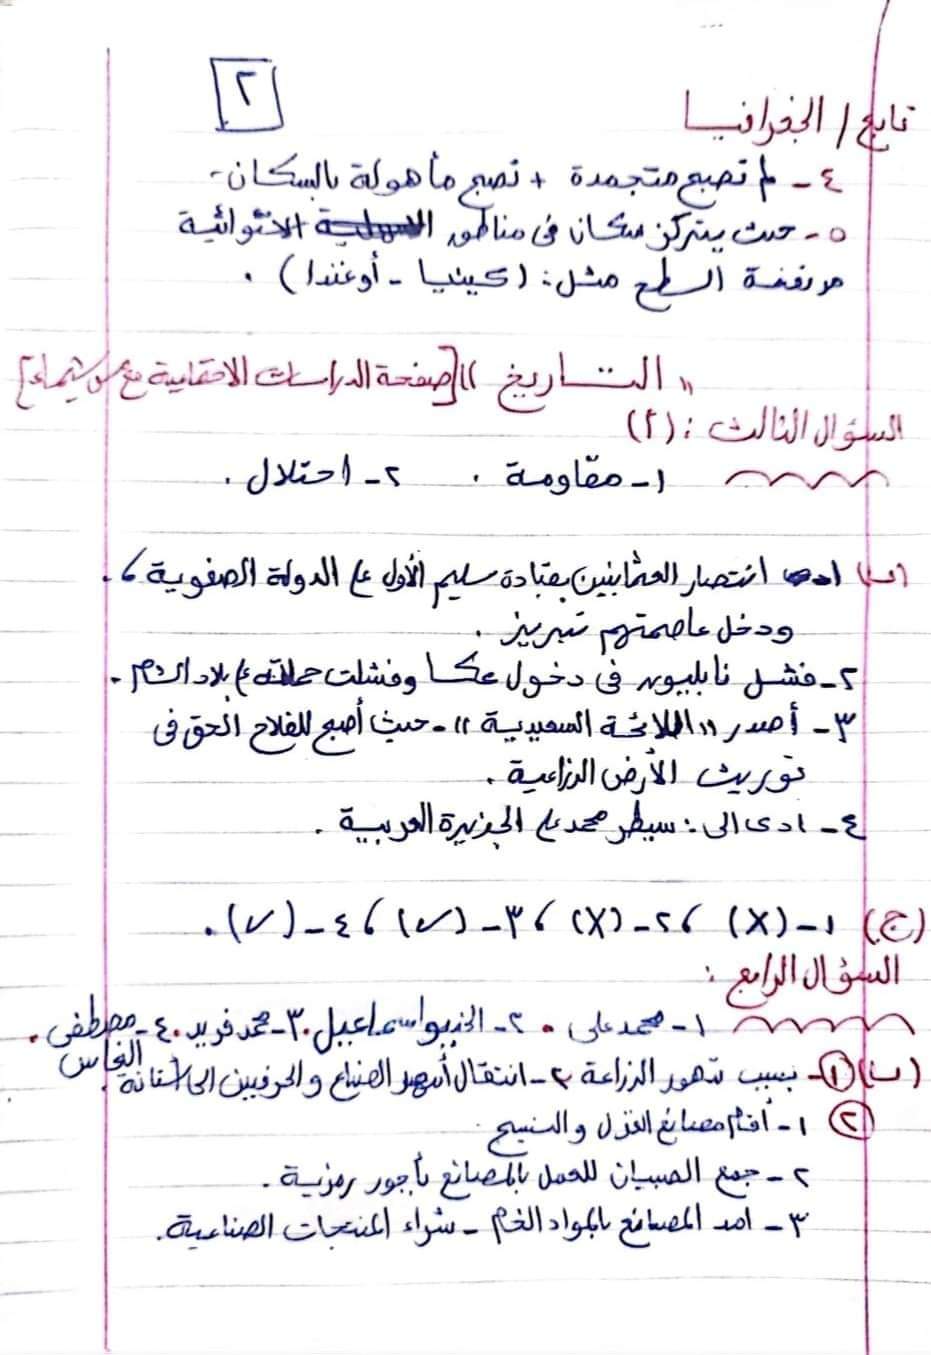 ٢
تابع / الجغرافيا
٤ - لم تصبح متجمدة + تصبح مأهولة بالسكان -
٥ - حيث يتركز سكان فى مناطق الاستوائية
مرتفعة السطح مثل: (كينيا - أوغندا) .
"التاريخ" [صفحة الدراسات الاجتماعية مع مس شيماء]
السؤال الثالث: (أ)
١ - مقاومة . ٢ - احتلال .
(ب) ١ - انتصار العثمانيين بقيادة سليم الأول على الدولة الصفوية ،
ودخل عاصمتهم تبريز .
٢ - فشل نابليون فى دخول عكا وفشلت حملته على بلاد الشام .
٣ - أصدر "اللائحة السعيدية" - حيث أصبح للفلاح الحق فى
توريث الأرض الزراعية .
٤ - ادى الى: سيطر محمد على الجزيرة العربية .
(ج) ١ - (X) ، ٢ - (X) ، ٣ - (✓) ، ٤ - (✓) .
السؤال الرابع :
١ - محمد على . ٢ - الخديو اسماعيل . ٣ - محمد فريد . ٤ - مصطفى النحاس .
(ب) ① - بسبب تدهور الزراعة ٢ - انتقال أمهر الصناع والحرفيين الى الآستانة .
② ١ - أقام مصانع الغزل والنسيج .
٢ - جمع الصبيان للعمل بالمصانع بأجور رمزية .
٣ - امد المصانع بالمواد الخام - شراء المنتجات الصناعية .